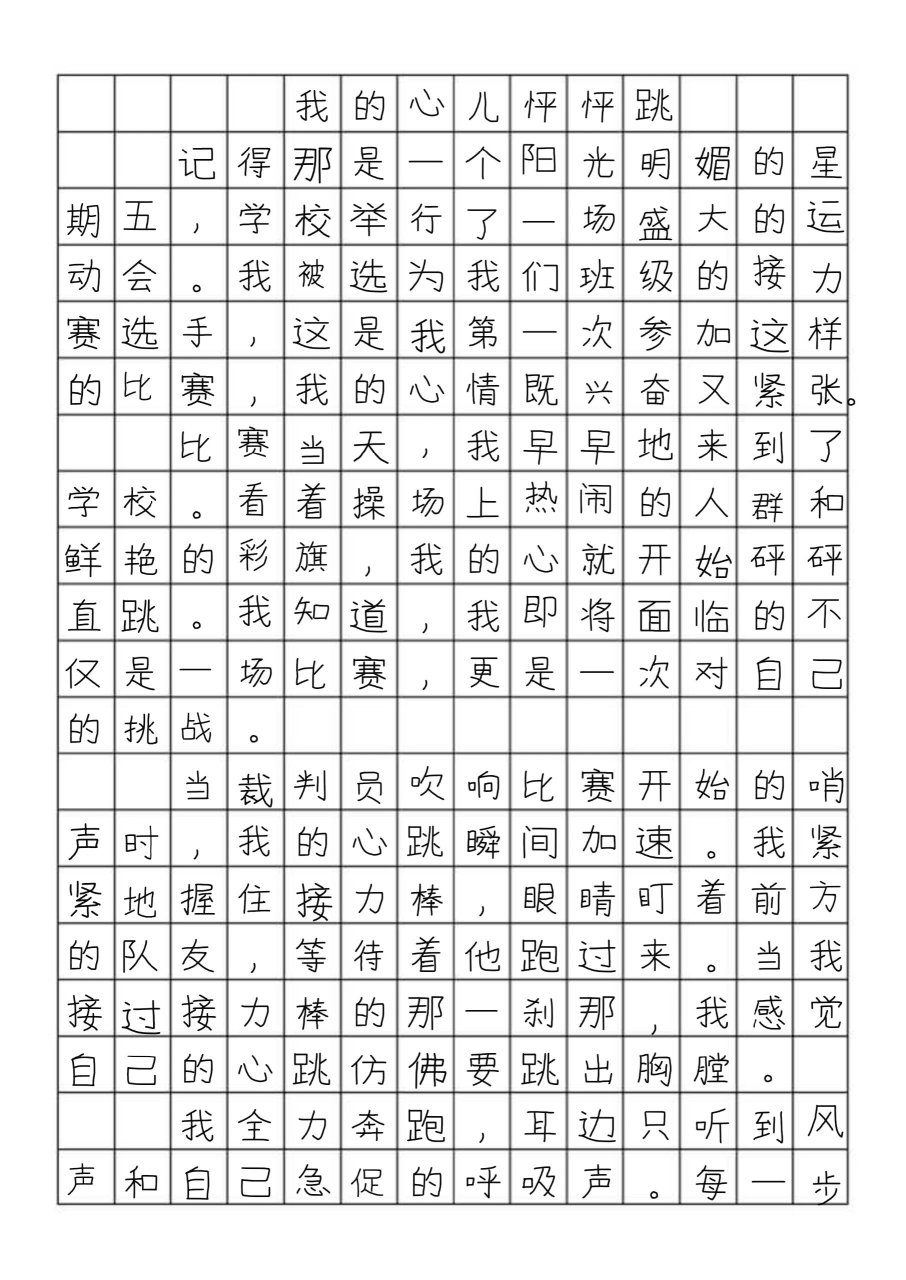 我的心儿怦怦跳
记得那是一个阳光明媚的星
期五，学校举行了一场盛大的运
动会。我被选为我们班级的接力
赛选手，这是我第一次参加这样
的比赛，我的心情既兴奋又紧张。
比赛当天，我早早地来到了
学校。看着操场上热闹的人群和
鲜艳的彩旗，我的心就开始砰砰
直跳。我知道，我即将面临的不
仅是一场比赛，更是一次对自己
的挑战。
当裁判员吹响比赛开始的哨
声时，我的心跳瞬间加速。我紧
紧地握住接力棒，眼睛盯着前方
的队友，等待着他跑过来。当我
接过接力棒的那一刹那，我感觉
自己的心跳仿佛要跳出胸膛。
我全力奔跑，耳边只听到风
声和自己急促的呼吸声。每一步